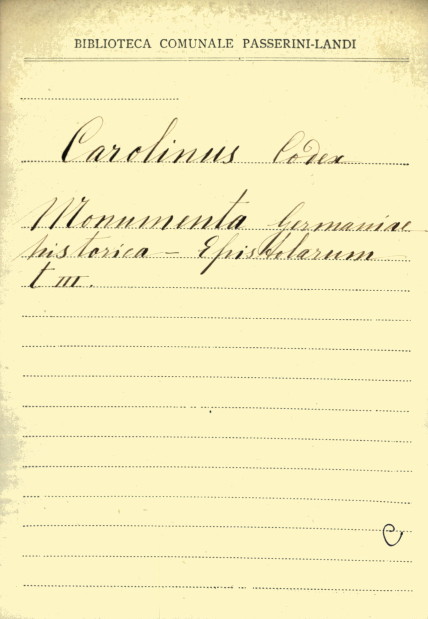 BIBLIOTECA COMUNALE PASSERINI-LANDI
Carolinus Codex
Monumenta Germaniae
historica - Epistolarum
t III.
C